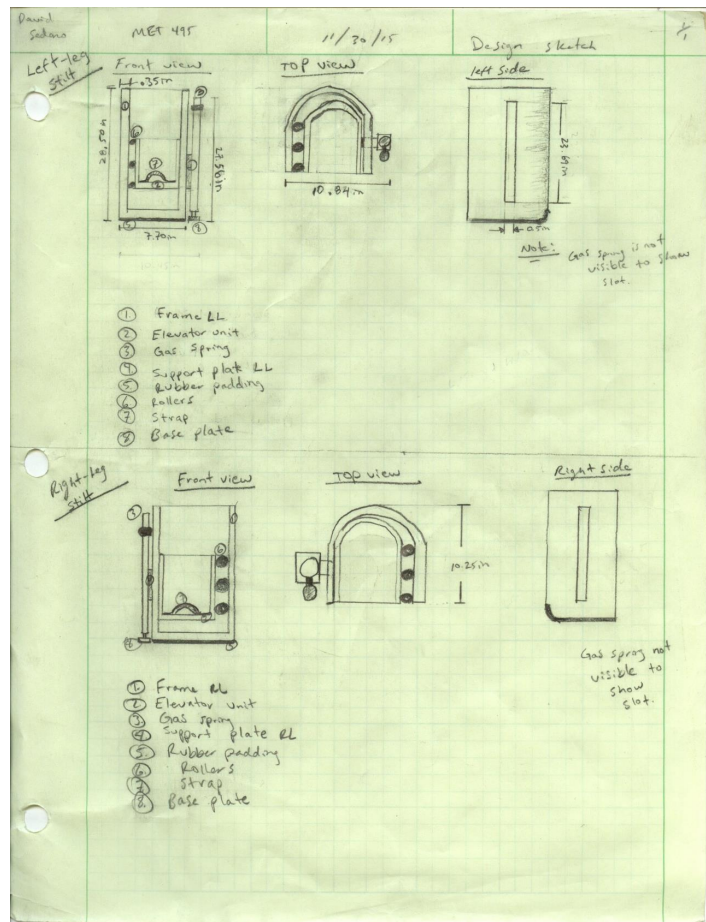 David
Sedano
MET 495
11/30/15
Design sketch
1/1
Left-leg
Stilt
Front view
TOP view
left side
.35in
28.50in
27.56in
7.70in
10.84in
23.69in
0.5in
Note: Gas spring is not
visible to show
slot.
① Frame LL
② Elevator unit
③ Gas Spring
④ Support plate LL
⑤ Rubber padding
⑥ Rollers
⑦ Strap
⑧ Base plate
Right-leg
Stilt
Front view
TOP view
Right side
10.25in
Gas spring not
visible to
show
slot.
① Frame RL
② Elevator unit
③ Gas spring
④ Support plate RL
⑤ Rubber padding
⑥ Rollers
⑦ Strap
⑧ Base plate